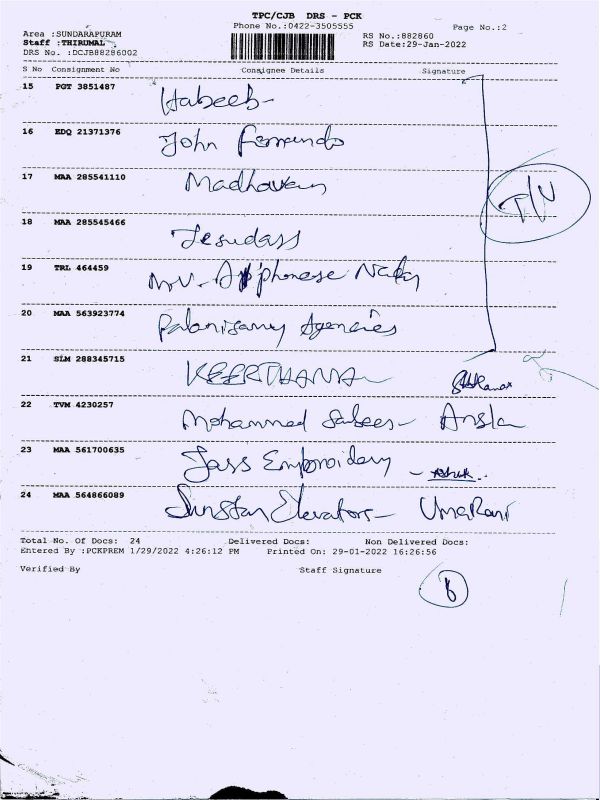 TPC/CJB DRS - PCK
Phone No.:0422-3505555 Page No.:2
Area :SUNDARAPURAM RS No.:882860
Staff :THIRUMAL RS Date:29-Jan-2022
DRS No. :DCJB88286002
S No Consignment No Consignee Details Signature
15 PGT 3851487 Habeeb-
16 EDQ 21371376 John Fernando
17 MAA 285541110 Madhavan
18 MAA 285545466 Jesudass
19 TRL 464459
20 MAA 563923774 Palanisamy Agencies
21 SLM 288345715 KEERTHANA
22 TVM 4230257 Mohammed Sabees-
23 MAA 561700635 Jass Embroidery - Ashok..
24 MAA 564866089 Sunstar Elevators- UmaRani
Total No. Of Docs: 24 Delivered Docs: Non Delivered Docs:
Entered By :PCKPREM 1/29/2022 4:26:12 PM Printed On: 29-01-2022 16:26:56
Verified By Staff Signature